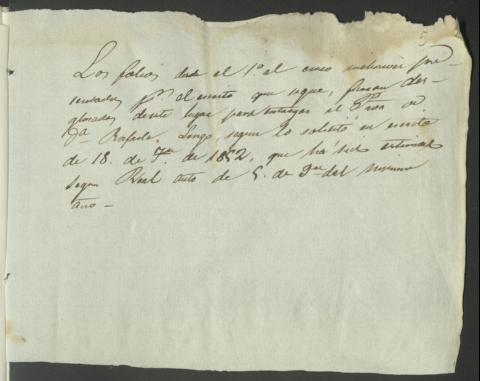 5
Los folios desde el 1º al cinco inclusive pre-
sentados pr. el escrito que sigue, fueron des-
glosados deste lugar para entregar al
Dª. Rafaela segun lo solicitó en escrito
de 18. de de 1852, que ha sido
segun Real auto de 5. de del mismo
año -